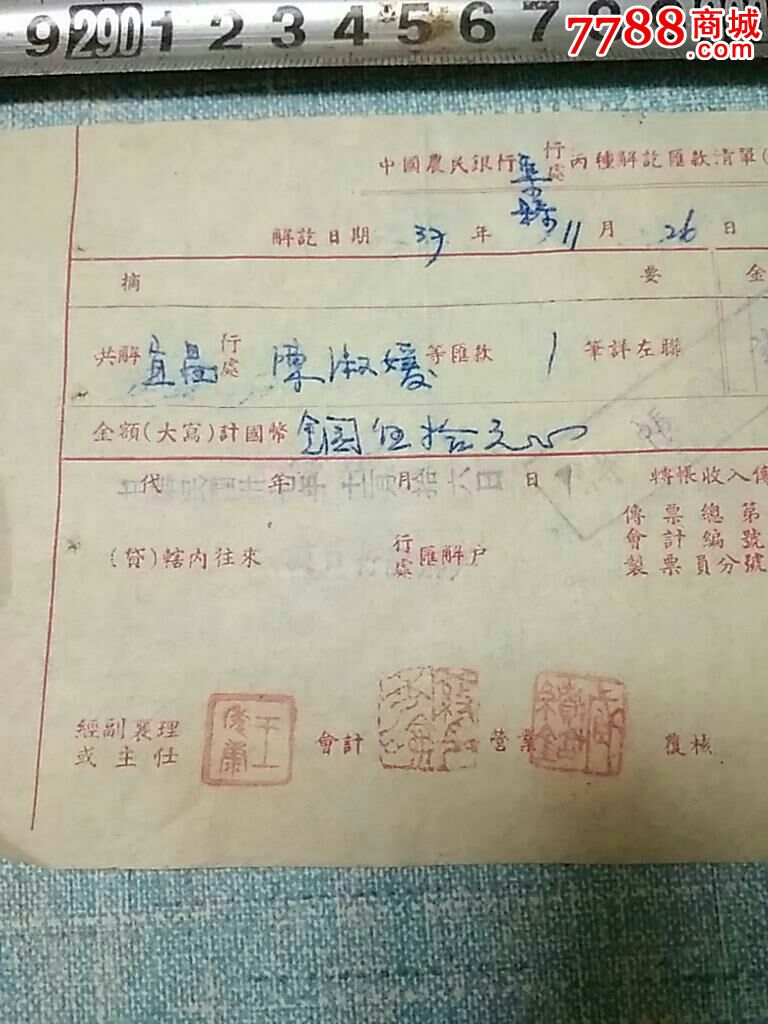 9 290 1 2 3 4 5 6 7 8
7788商城
.com
中國農民銀行 行處 丙種解訖匯款清單(
解訖日期 37 年 11 月 26 日
摘要 金
共解 宜昌 行處 陳淑媛 等匯款 1 筆詳左聯
金額(大寫)計國幣 金圓伍拾元正
代 年 月 日 轉帳收入傳
中華民國卅七年十一月廿六日
傳票總第
(貸)轄內往來 行處 匯解户 會計編號
製票員分號
經副襄理 會計 營業 覆核
或主任